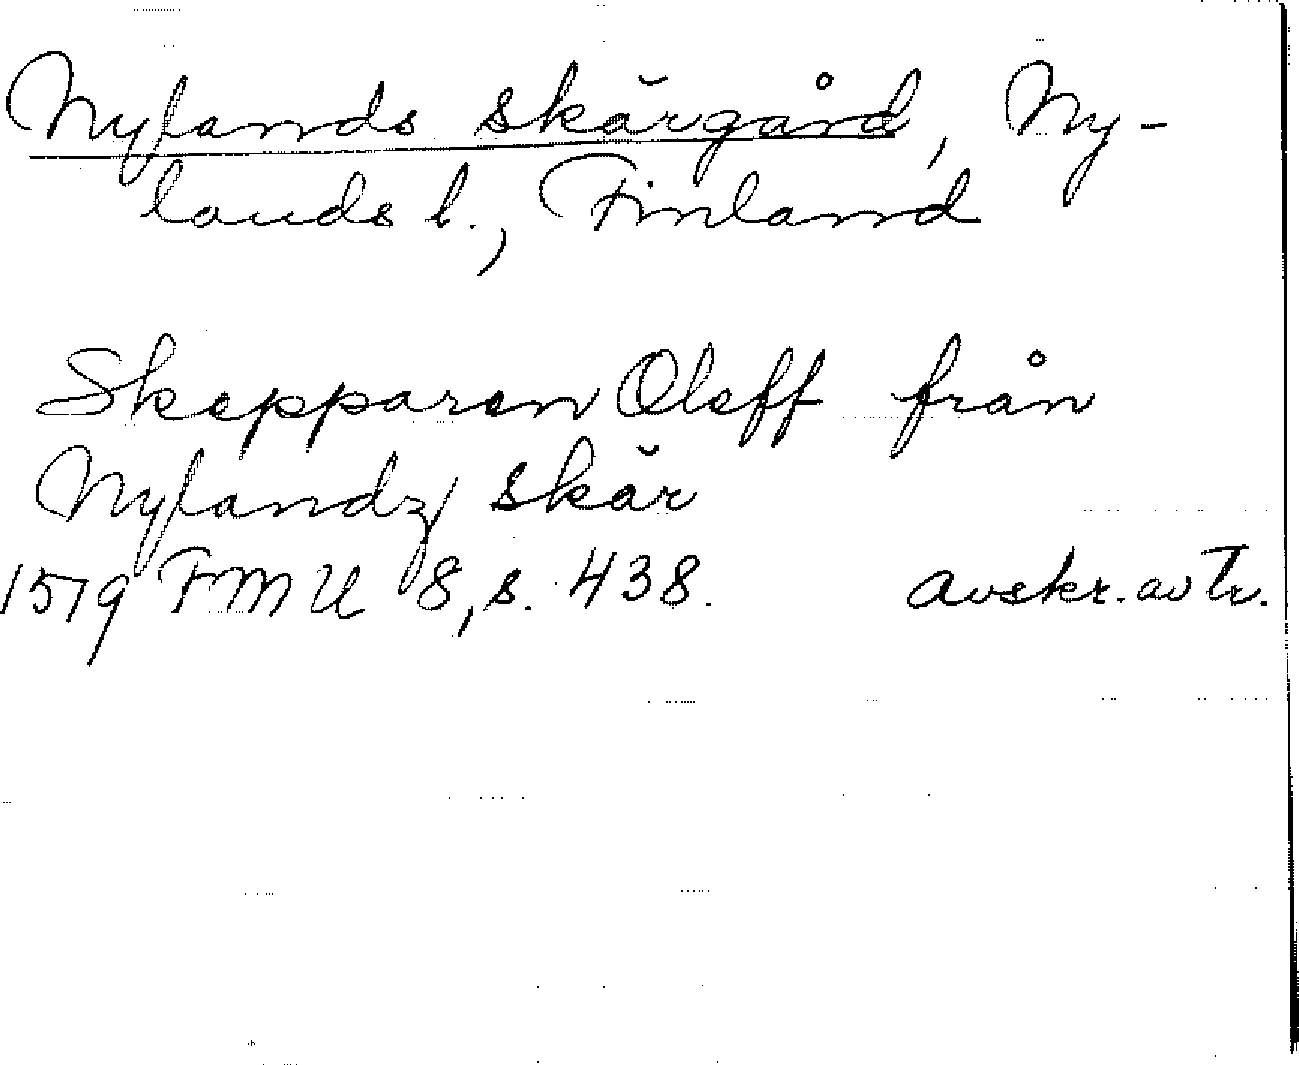 Nylands skärgård, Ny-
lands l., Finland
Skepparen Oleff från
Nylandz skär
1579 FMU 8, s. 438. Avskr. av Tr.